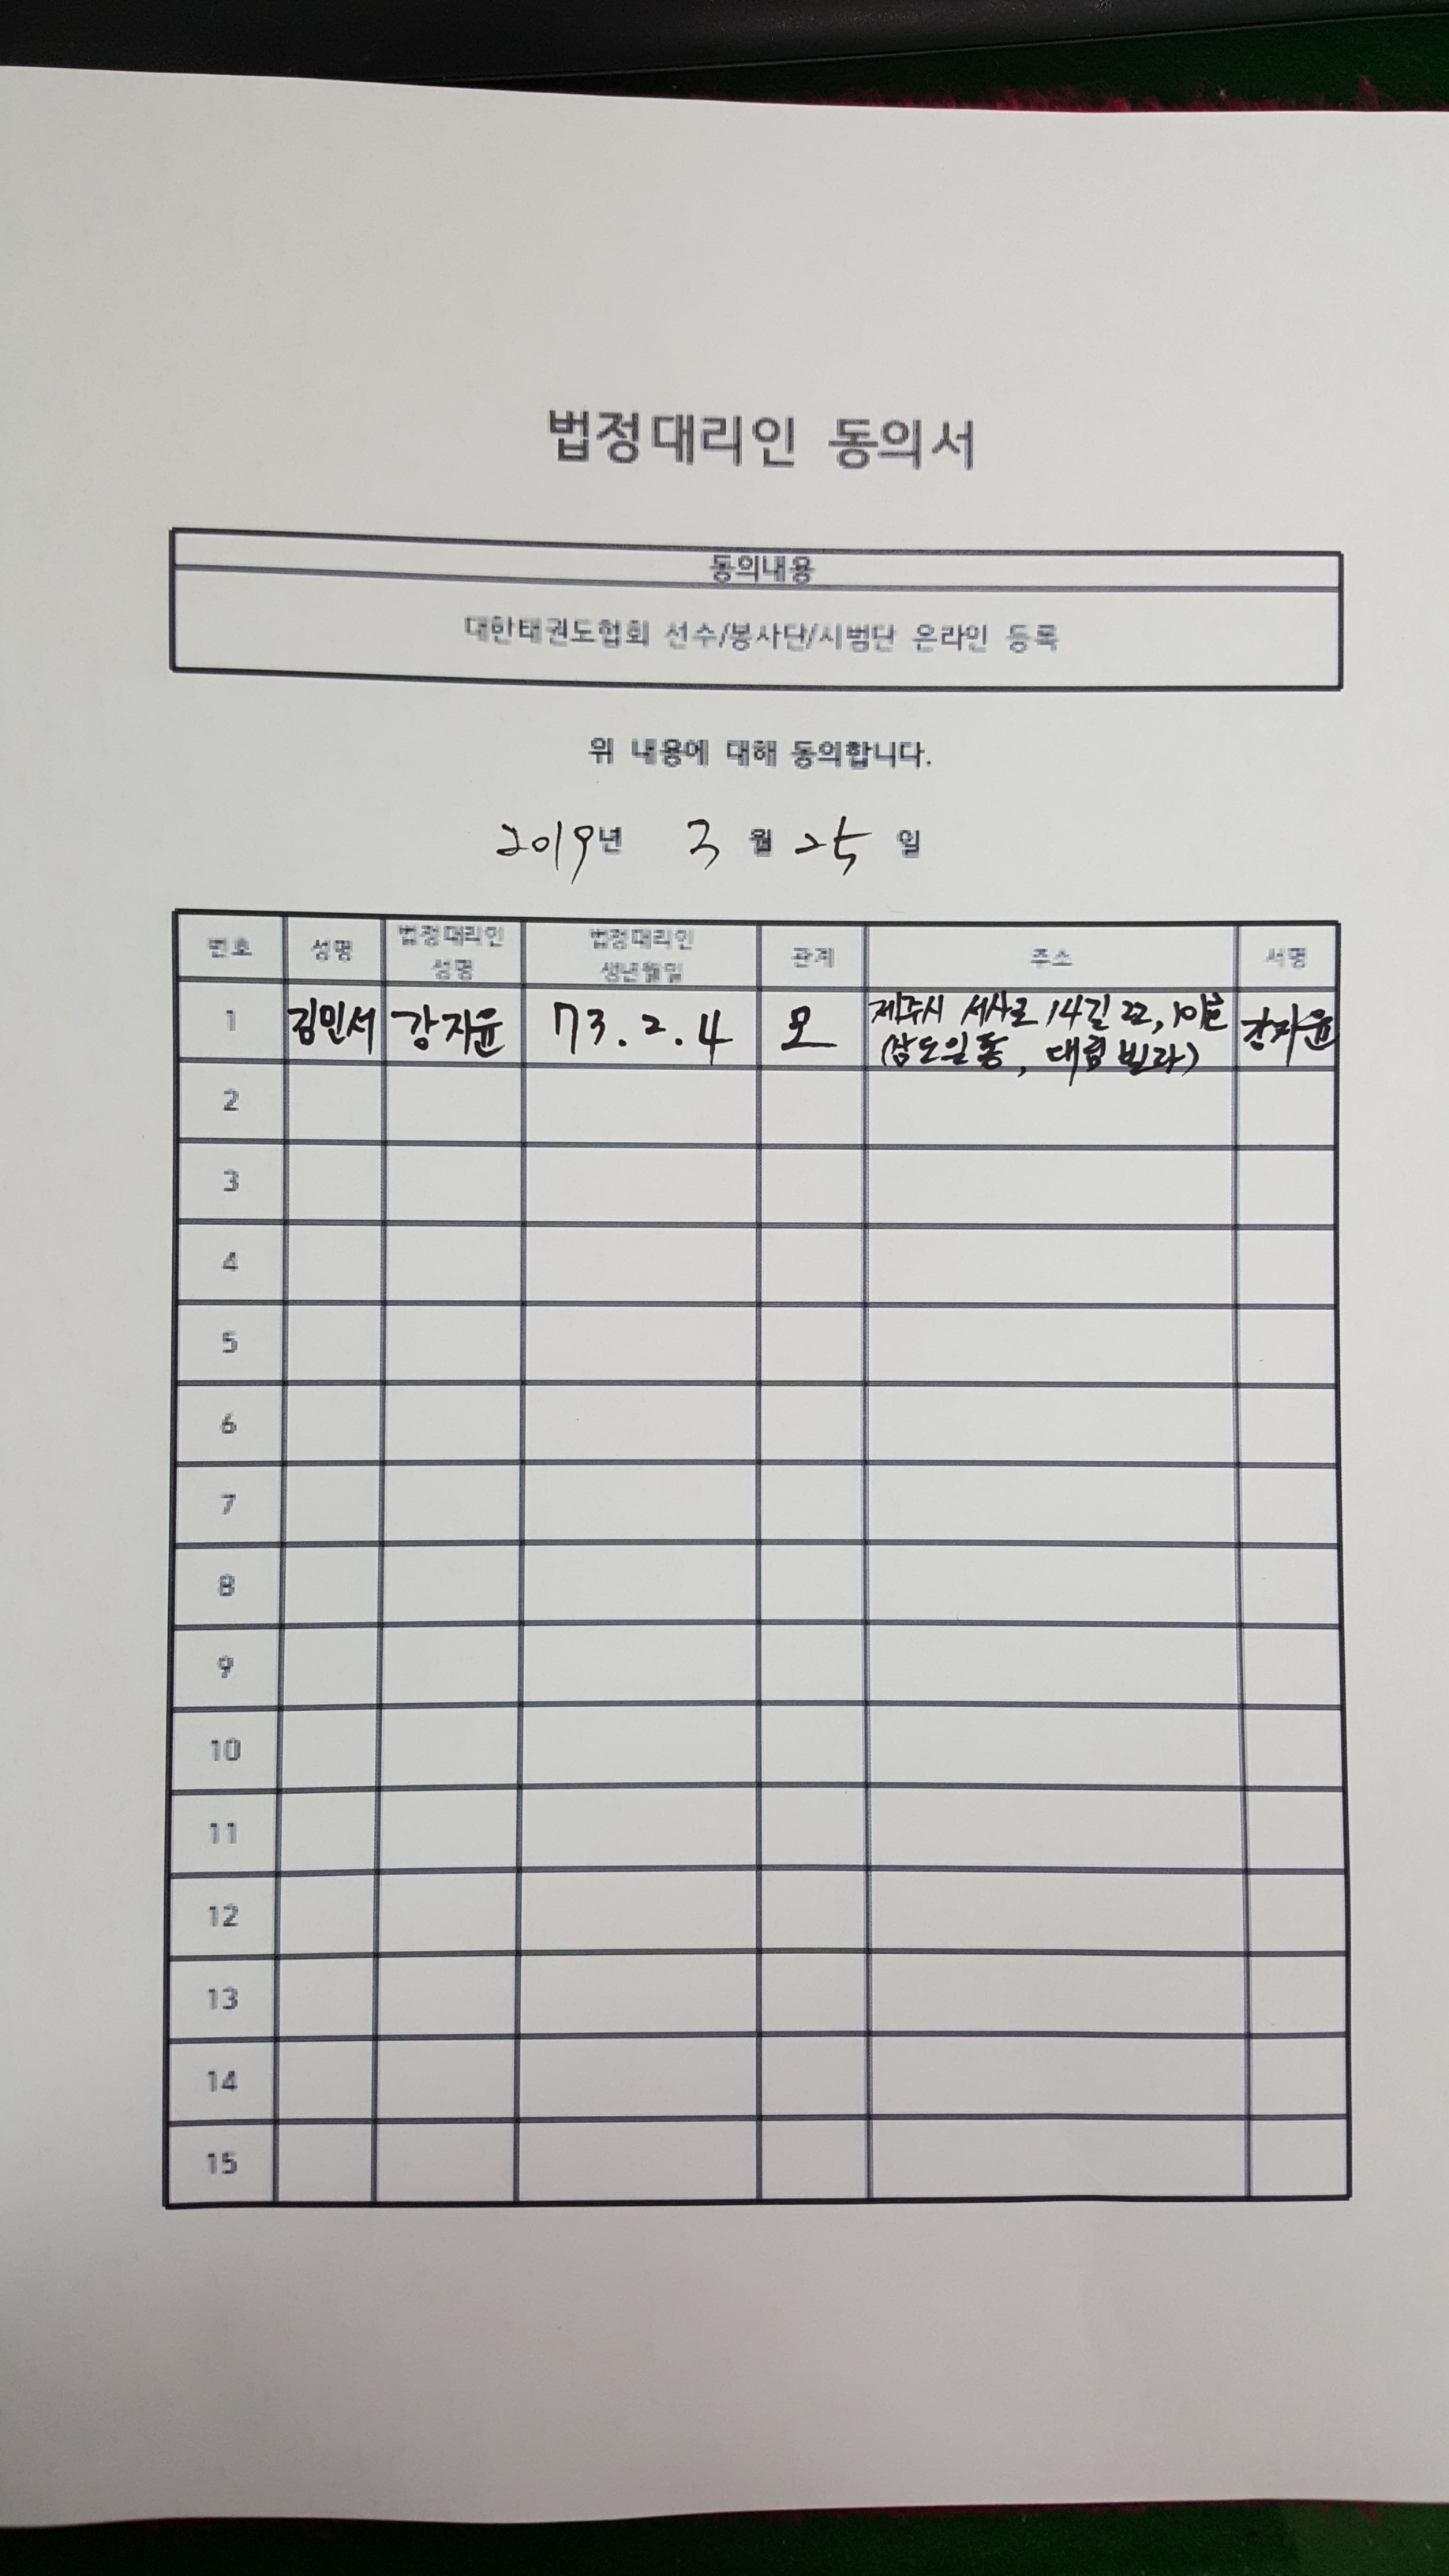 법정대리인 동의서
동의내용
대한태권도협회 선수/봉사단/시범단 온라인 등록
위 내용에 대해 동의합니다.
2019년 3월 25일
번호 성명 법정대리인 성명 법정대리인 생년월일 관계 주소 서명
1 김민서 강지윤 73.2.4 모 제주시 서사로 14길 22, 101호 강지윤
(삼도일동, 대림빌라)
2
3
4
5
6
7
8
9
10
11
12
13
14
15